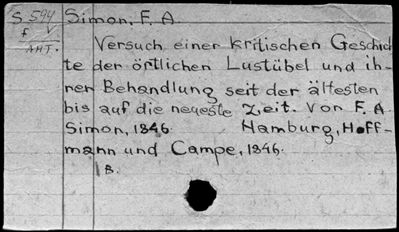 S 594 Simon, F. A.
f
AHT. Versuch einer kritischen Geschich
te der örtlichen Lustübel und ih-
rer Behandlung seit der ältesten
bis auf die neueste Zeit. Von F. A
Simon, 1846. Hamburg, Hoff-
mann und Campe, 1846.
1 B.